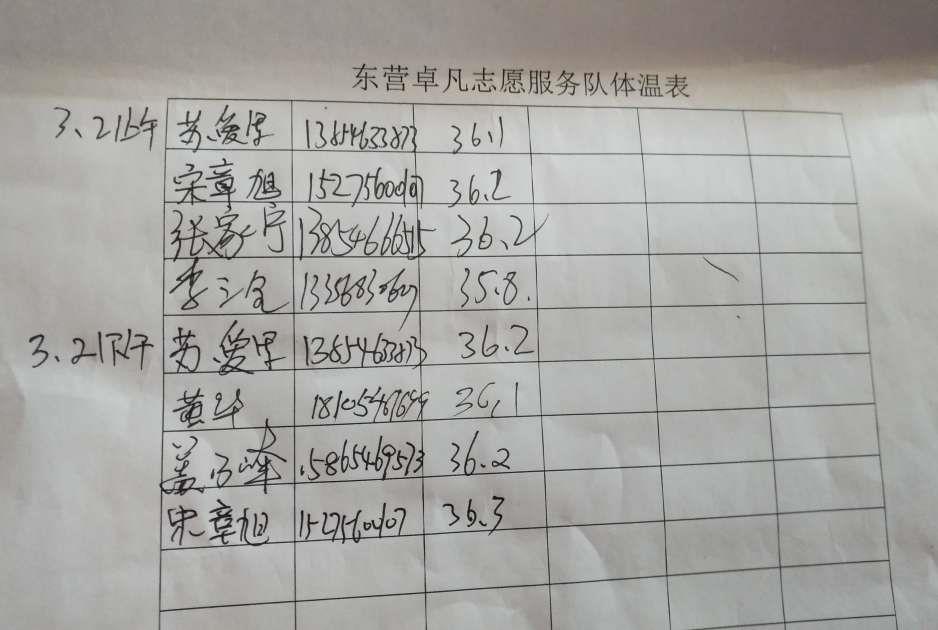 东营卓凡志愿服务队体温表
3.21上午 苏爱华 13854633873 36.1
宋章旭 15275600107 36.2
张家宁 13854666515 36.2
李三宝 36.8.
3.21下午 苏爱华 13854633873 36.2
黄华 36.1
盖 峰 15865469573 36.2
宋章旭 15275600107 36.3